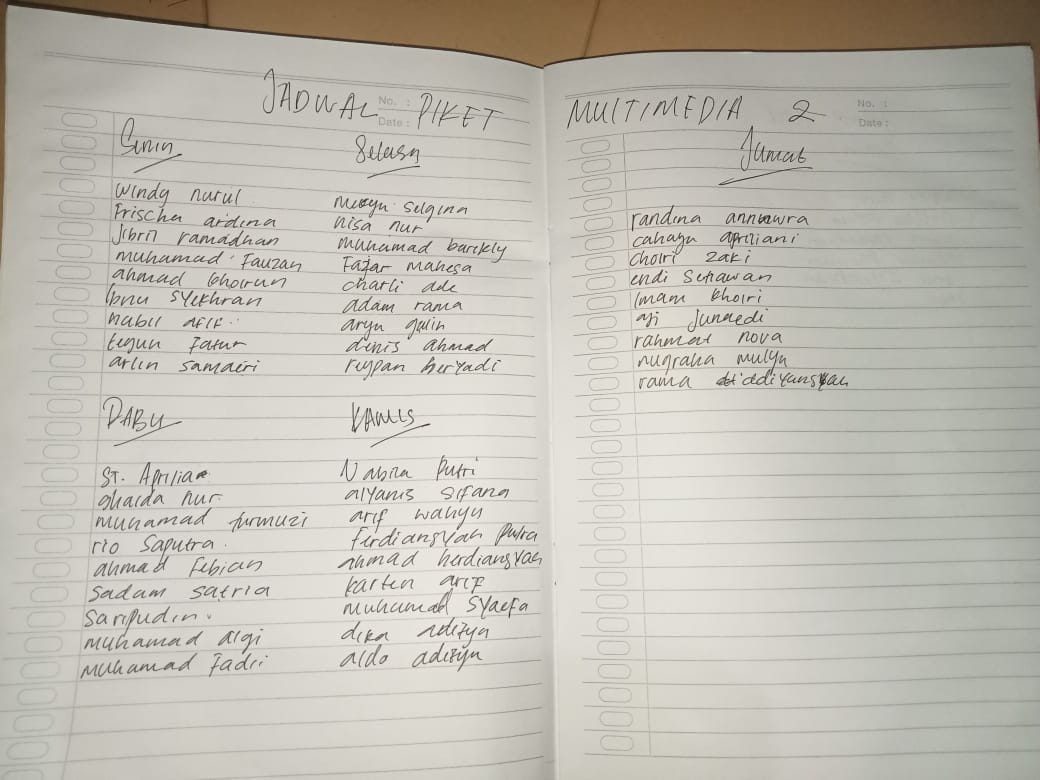 JADWAL PIKET MULTIMEDIA 2
No. :
Date :
No. :
Date :
Senin
windy nurul
Frischa ardina
Jibril ramadhan
muhamad Fauzan
ahmad khoirun
Ibnu syekhran
nabil afif
teguh Fatur
arlin samaeri
Selasa
selgina
nisa nur
muhamad barckly
Fajar Mahesa
charli ade
adam rama
arya galin
denis ahmad
reypan heryadi
RABU
ST. Aprilia
ghaida nur
muhamad turmuzi
rio Saputra
ahmad Febian
sadam satria
saripudin
muhamad algi
muhamad Fadli
KAMIS
Nabila Putri
alyanis sifana
arif wahyu
Ferdiansyah putra
ahmad herdiansyah
karten arif
Muhamad Syaefa
dika aditya
aldo aditya
Jumat
randina
cahaya apriliani
choiri zaki
endi setiawan
Imam khoiri
aji Junaedi
rahmat nova
nugraha mulya
rama